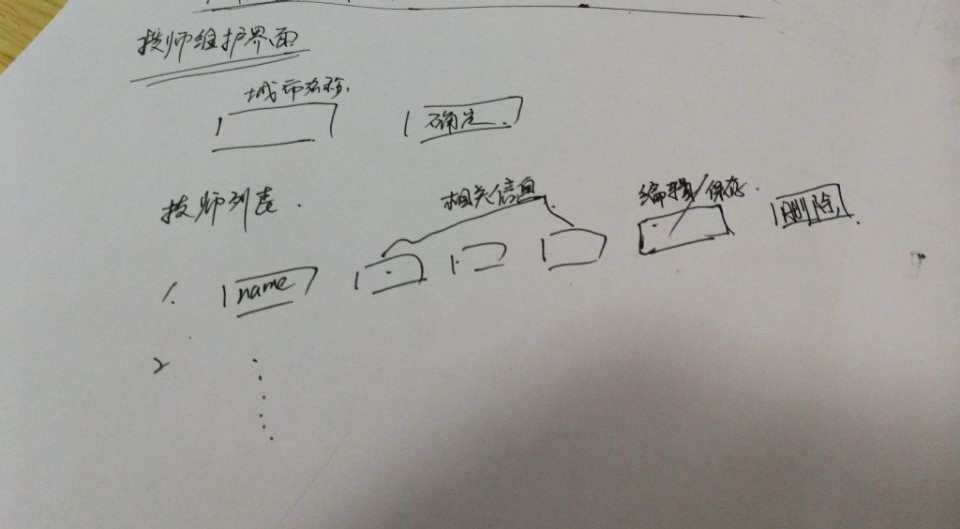 技师维护界面
城市名称.
确定
技师列表.
相关信息
编辑/保存.
删除
1. name
2